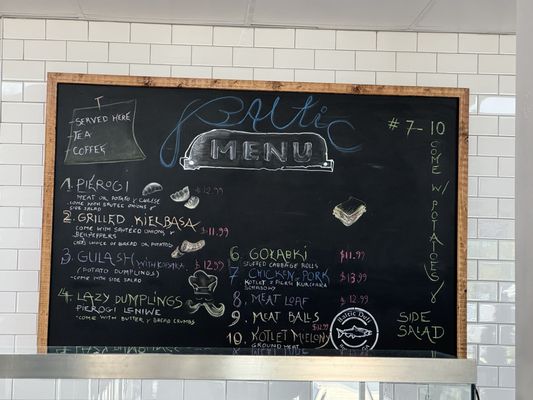 SERVED HERE
TEA
COFFEE
Baltic
MENU
1. PIEROGI $12.99
MEAT OR POTATO & CHEESE
- COME WITH SAUTEÉ ONIONS &
SIDE SALAD
2. GRILLED KIEŁBASA $11.99
COME WITH SAUTEÉD ONIONS &
BELLPEPPERS
CHOICE OF BREAD OR POTATO
3. GULASH WITH $12.99
(POTATO DUMPLINGS)
- COME WITH SIDE SALAD
4. LAZY DUMPLINGS
PIEROGI LENIWE
- COME WITH BUTTER & BREAD CRUMBS
6 GOŁĄBKI $11.99
STUFFED CABBAGE ROLLS
7 CHICKEN, PORK $13.99
KOTLET Z PIERSI KURCZAKA
SCHABOWY
8 MEAT LOAF $12.99
9. MEAT BALLS $12.99
10. KOTLET MIELONY
GROUND MEAT
Baltic Deli
#7-10
COME W/ POTATOES &
SIDE
SALAD